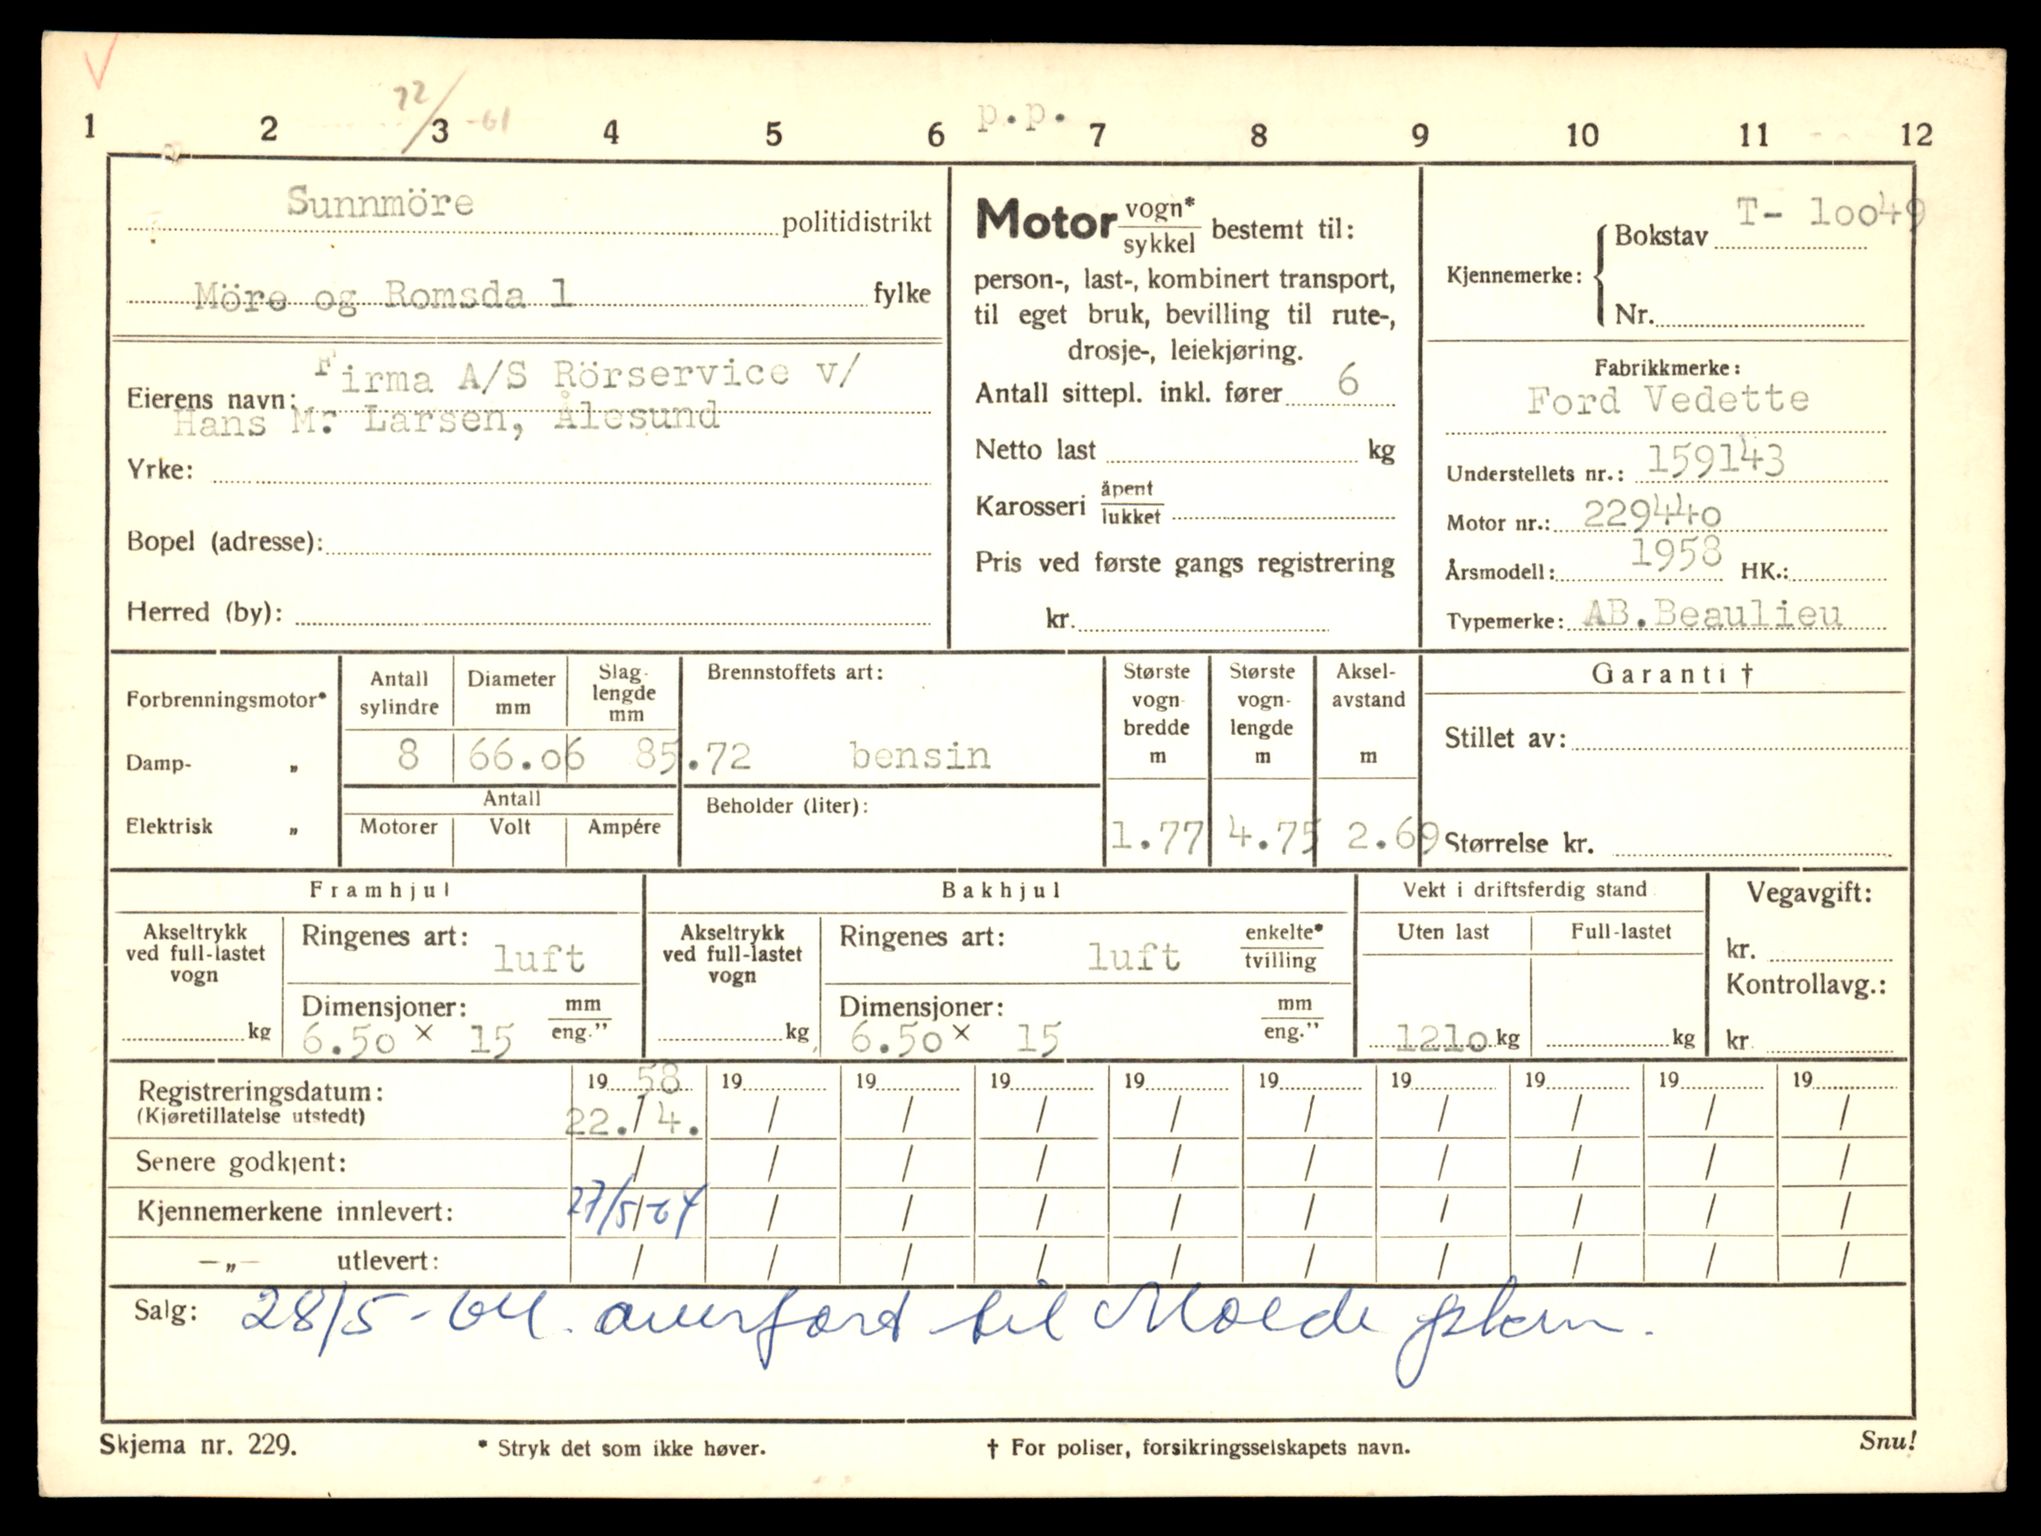 22/ -61
p.p.
1 2 3 4 5 6 7 8 9 10 11 12
Sunnmöre politidistrikt
Möre og Romsda l fylke
Eierens navn: Firma A/S Rörservice v/
Hans M. Larsen, Ålesund
Yrke:
Bopel (adresse):
Herred (by):
Motor vogn* / sykkel bestemt til:
person-, last-, kombinert transport,
til eget bruk, bevilling til rute-,
drosje-, leiekjøring.
Antall sittepl. inkl. fører 6
Netto last kg
Karosseri åpent / lukket
Pris ved første gangs registrering
kr.
Kjennemerke: Bokstav T- 10049
Nr.
Fabrikkmerke:
Ford Vedette
Understellets nr.: 159143
Motor nr.: 229440
Årsmodell: 1958 HK.:
Typemerke: AB.Beaulieu
Forbrenningsmotor*
Damp- „
Elektrisk „
Antall sylindre
8
Diameter mm
66.06
Slag-lengde mm
85.72
Antall
Motorer Volt Ampére
Brennstoffets art:
bensin
Beholder (liter):
Største vogn-bredde m
1.77
Største vogn-lengde m
4.75
Aksel-avstand m
2.69
Garanti †
Stillet av:
Størrelse kr.
Framhjul
Akseltrykk
ved full-lastet
vogn
kg
Ringenes art: luft
Dimensjoner: mm / eng."
6.50 × 15
Bakhjul
Akseltrykk
ved full-lastet
vogn
kg
Ringenes art: luft enkelte* / tvilling
Dimensjoner: mm / eng."
6.50 × 15
Vekt i driftsferdig stand
Uten last Full-lastet
1210 kg kg
Vegavgift:
kr.
Kontrollavg.:
kr
Registreringsdatum: 19 58 19 19 19 19 19 19 19 19 19
(Kjøretillatelse utstedt) 22./ 4. / / / / / / / / /
Senere godkjent: / / / / / / / / / /
Kjennemerkene innlevert: 27/5-64 / / / / / / / / /
—„— utlevert: / / / / / / / / / /
Salg: 28/5-64. overført til Molde pkm.
Skjema nr. 229. * Stryk det som ikke høver. † For poliser, forsikringsselskapets navn. Snu!